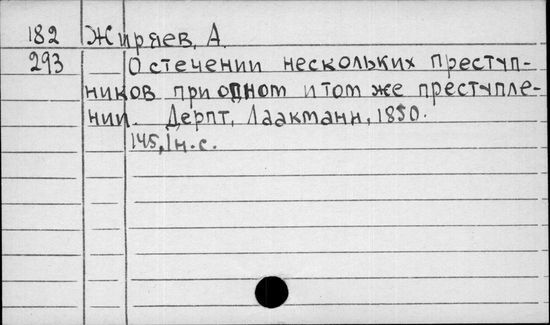 182 Жиряев, А.
293 О стечении нескольких преступ-
ников при одном и том же преступле-
нии. Дерпт, Лаакманн, 1850.
145, 1 н. с.